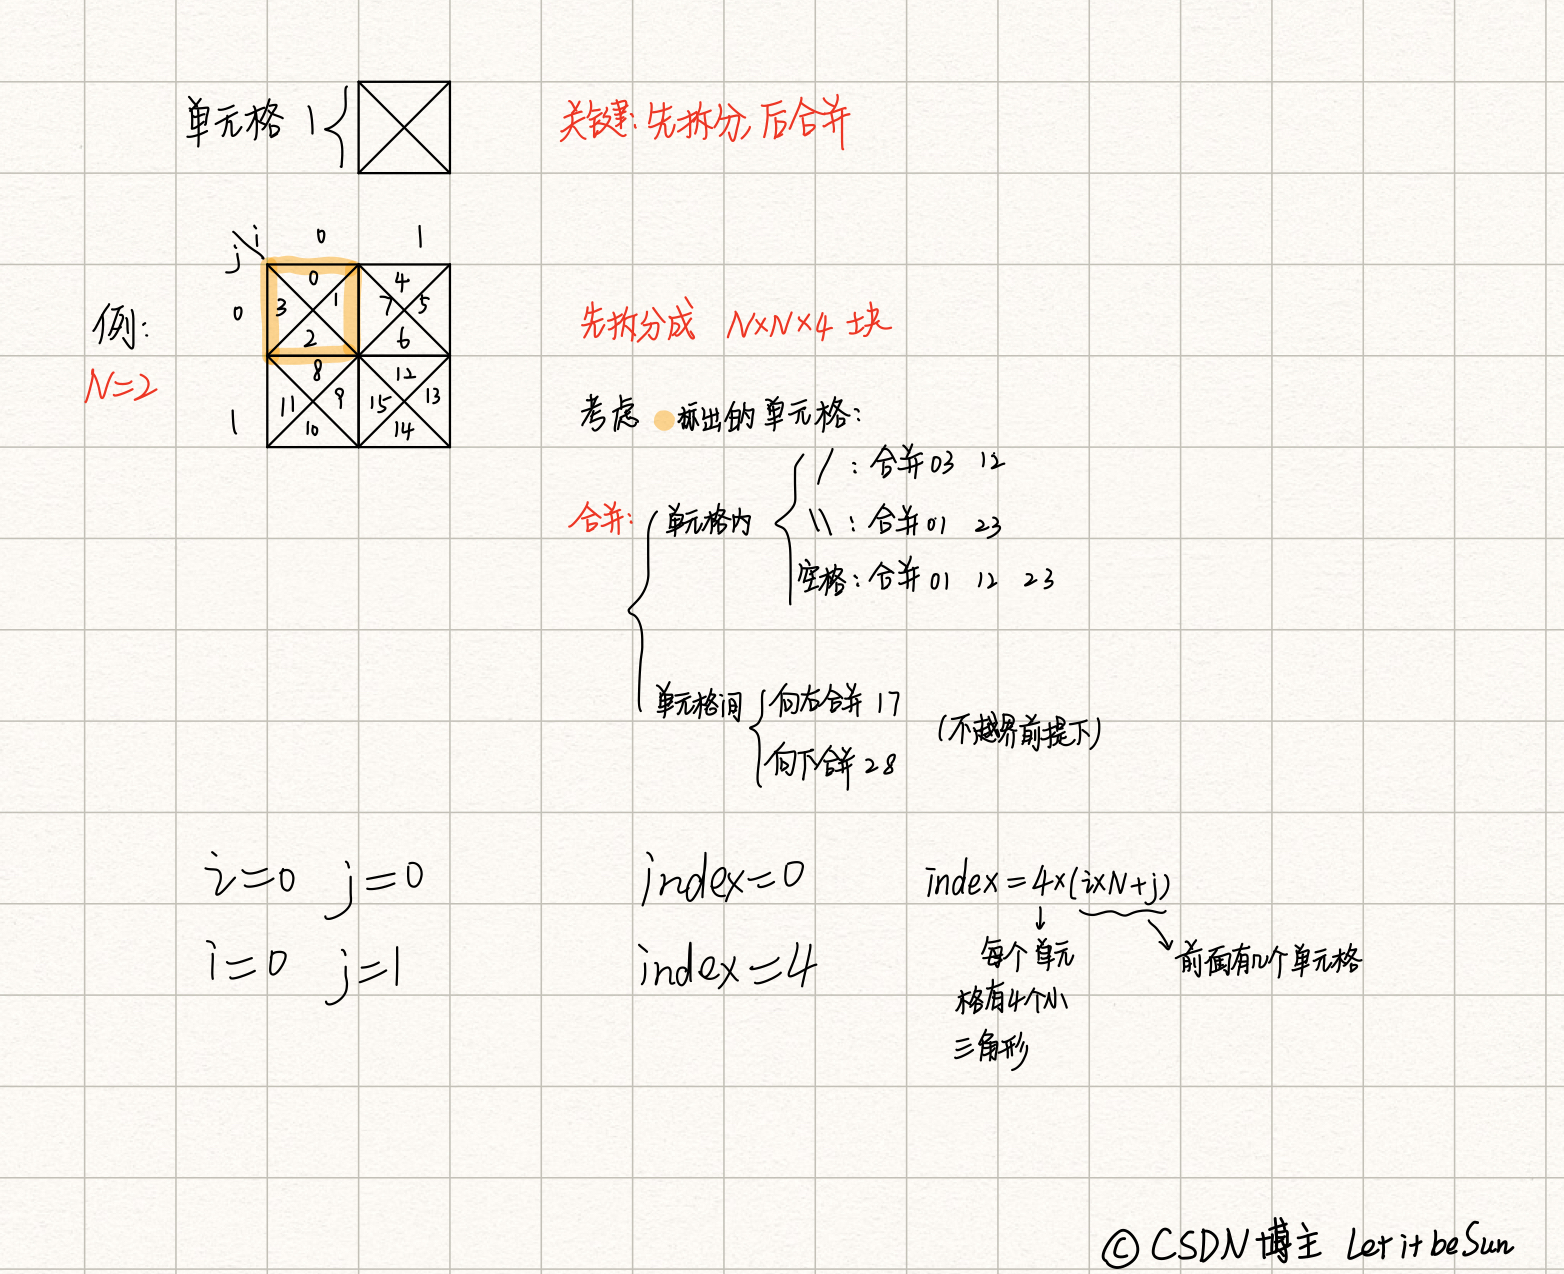 单元格 1
关键：先拆分，后合并
j i 0 1
0
0 1 2 3
4 5 6 7
1
8 9 10 11
12 13 14 15
例：
N=2
先拆分成 N×N×4 块
考虑 标出的单元格：
合并：
单元格内
/ ：合并 03 12
\\ ：合并 01 23
空格：合并 01 12 23
单元格间
向右合并 17
向下合并 28
(不越界前提下)
i=0 j=0 index=0
i=0 j=1 index=4
index=4×(i×N+j)
每个单元
格有4个小
三角形
前面有几个单元格
© CSDN博主 Let it beSun